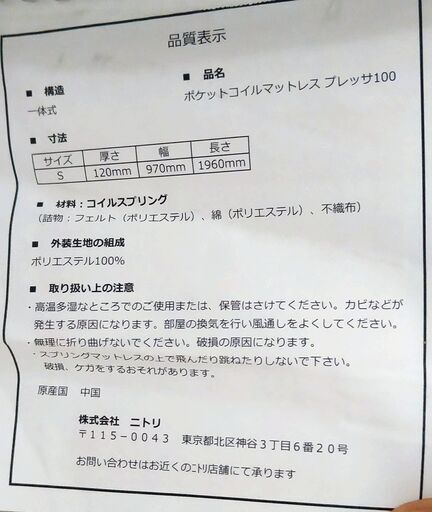 品質表示
■ 構造
一体式
■ 品名
ポケットコイルマットレス プレッサ100
■ 寸法
サイズ 厚さ 幅 長さ
S 120mm 970mm 1960mm
■ 材料：コイルスプリング
（詰物：フェルト（ポリエステル）、綿（ポリエステル）、不織布）
■ 外装生地の組成
ポリエステル100%
■ 取り扱い上の注意
・高温多湿なところでのご使用または、保管はさけてください。カビなどが
発生する原因になります。部屋の換気を行い風通しをよくしてください。
・無理に折り曲げないでください。破損の原因になります。
・スプリングマットレスの上で飛んだり跳ねたりしないで下さい。
破損、ケガをするおそれがあります。
原産国 中国
株式会社 ニトリ
〒115－0043 東京都北区神谷3丁目6番20号
お問い合わせはお近くのﾆﾄﾘ店舗にて承ります